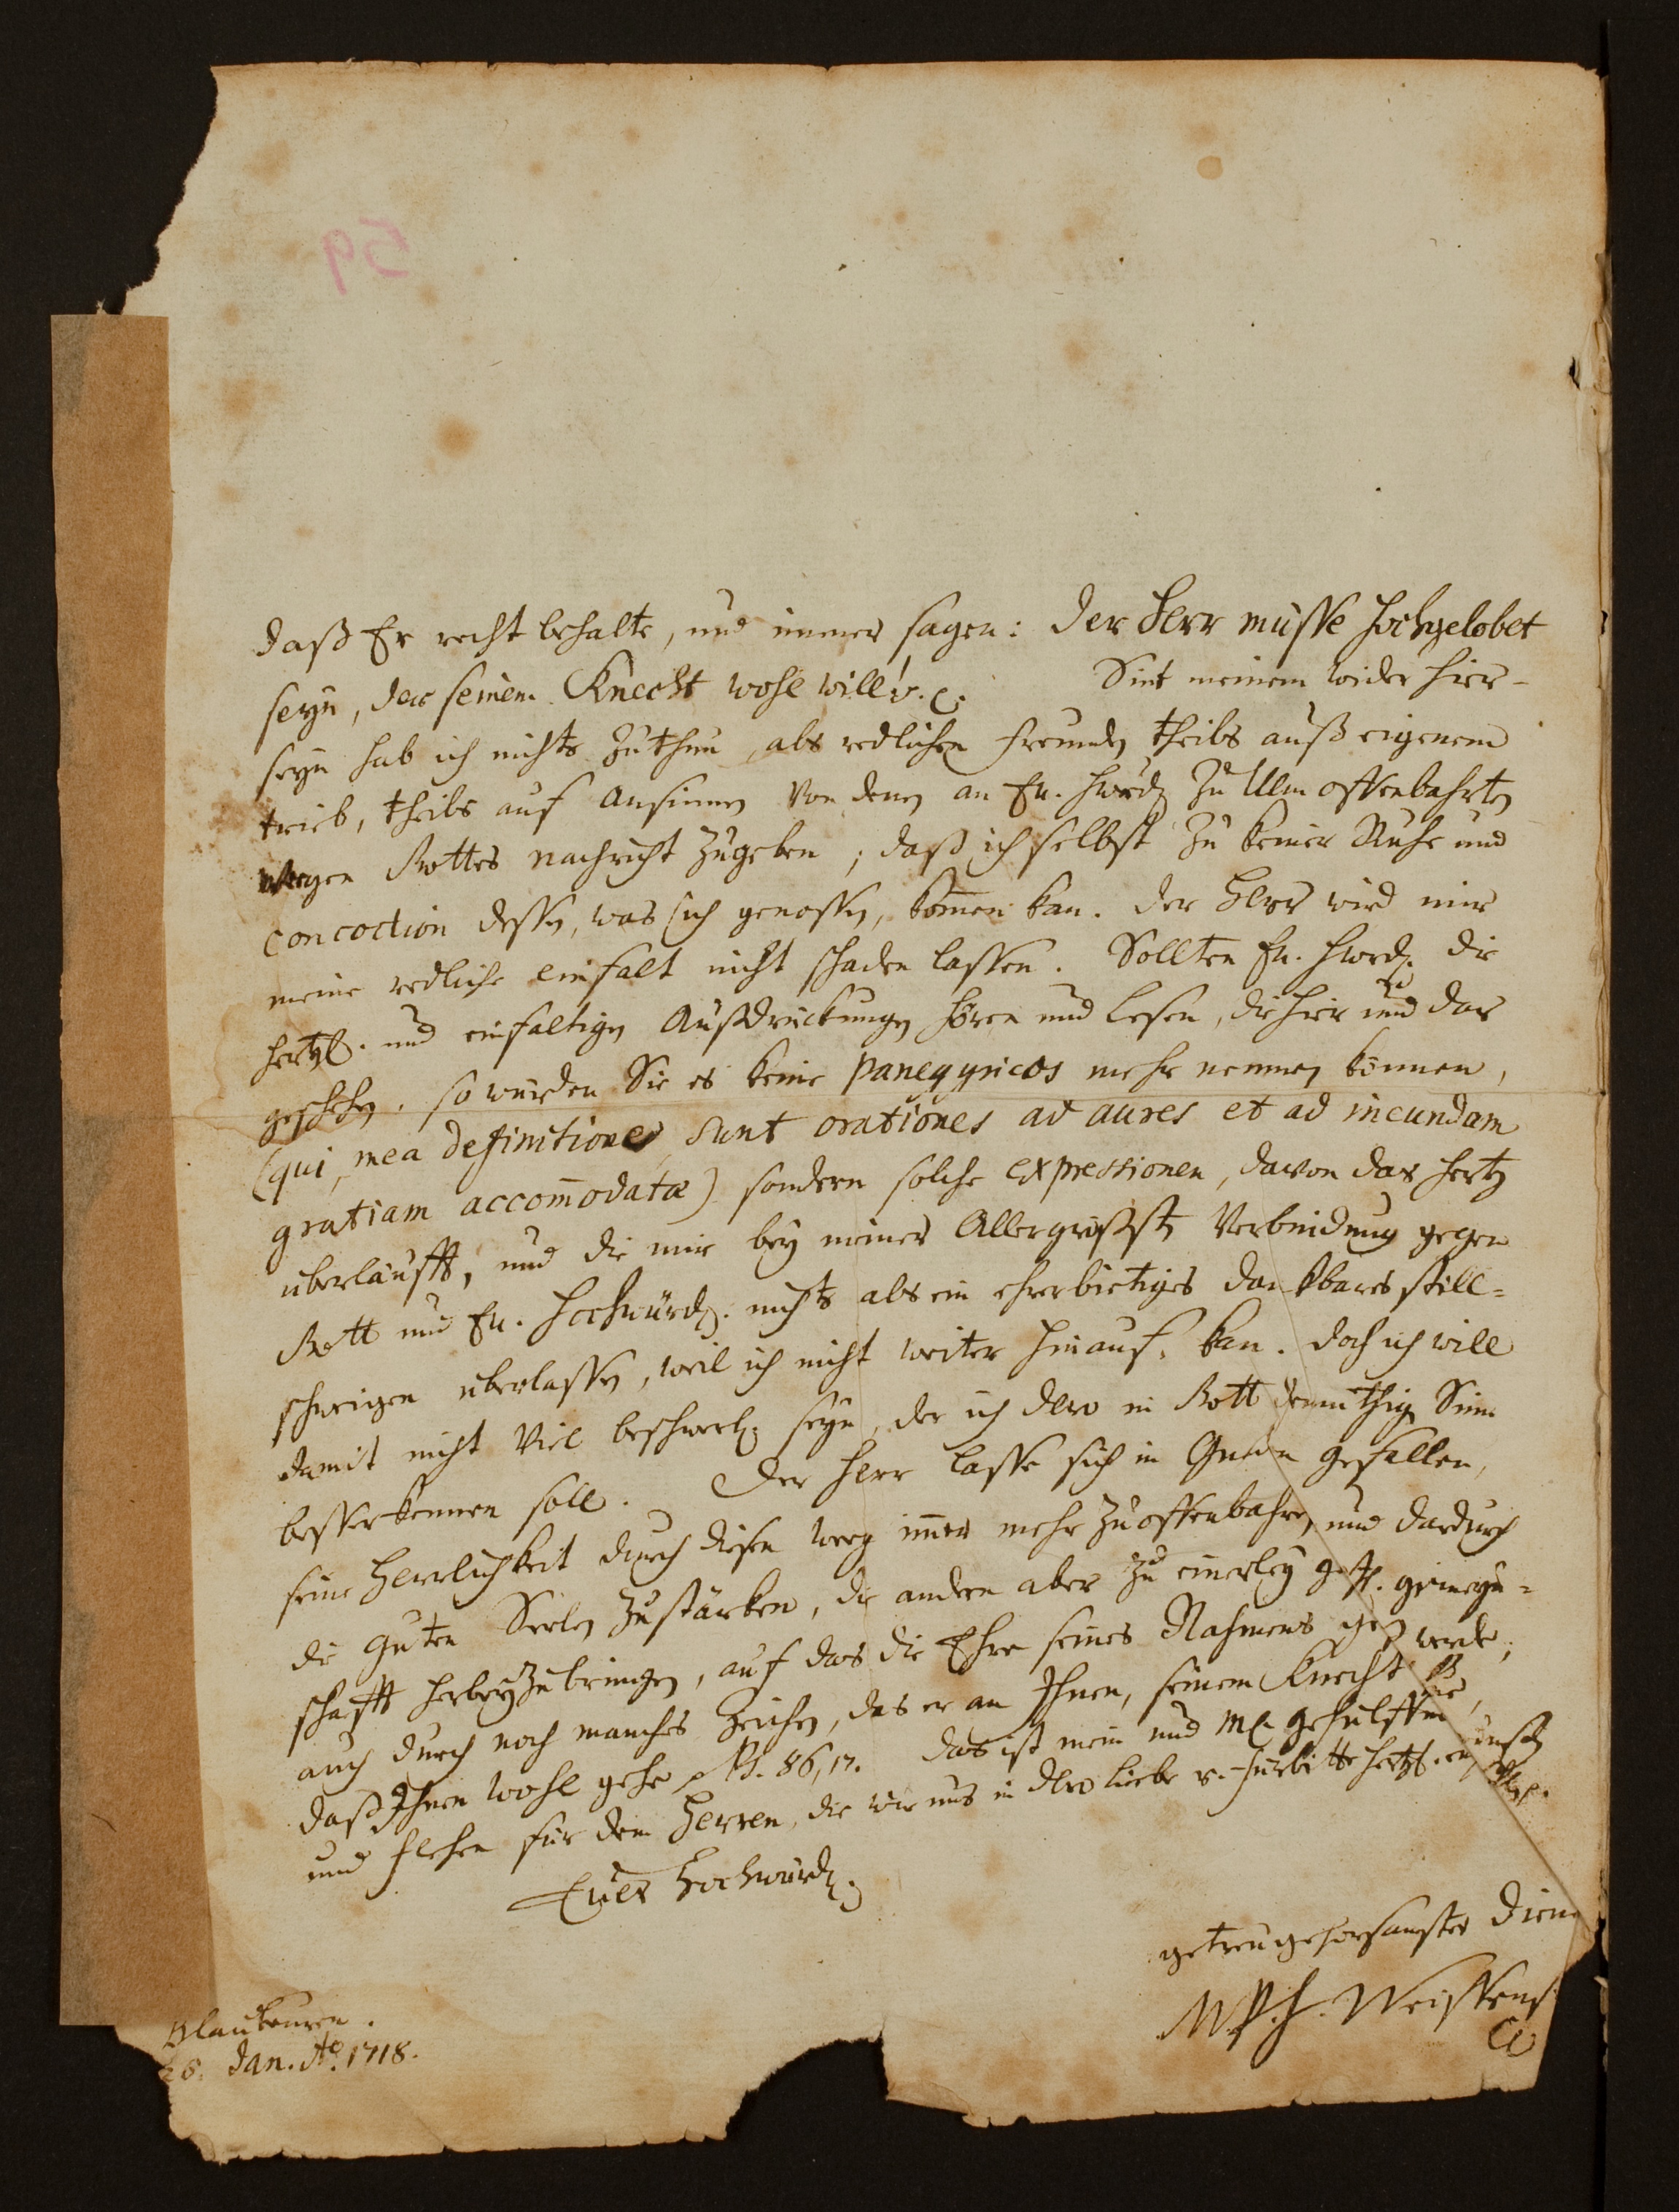 59
daß Er recht behalte, und immer sagen: Der Herr müsse hochgelobet
seyn, der seinem Knecht wohl will v. c. Sint meinem wider hier-
seyn hab ich nichts zuthun, als redlichen freunden theils auß eigenem
trieb, theils auf ansinnen von denen an Ew. Hwrd. zu Ulm offenbahrten
Wegen Gottes nachricht zugeben; daß ich selbst zu keiner Ruhe und
concoction dessen, was ich genossen, kom̄en kan. Der Herr wird mir
meine redliche einfalt nicht schaden lassen. Sollten Ew. Hwrd. die
hertzl. und einfaltigen Außdruckungen hören und lesen, die hier und dar
geschehen, so würden Sie es keine panegyricos mehr nennen können,
(qui, mea definitione, sunt orationes ad aures et ad ineundam
gratiam accom̄odatæ) sondern solche expressionen, davon das hertz
überläufft, und die mir bey meiner Allergrösten Verbindung gegen
Gott und Ew. Hochwürd. nichts als ein ehrerbietiges dankbares still-
schweigen überlassen, weil ich nicht weiter hinauf kan. Doch ich will
damit nicht viel beschwerl. seyn, der ich dero in Gott demüthigen Sinn
besser kennen soll. Der Herr lasse sich in Gnaden gefallen,
seine Herrlichkeit durch diesen weg im̄er mehr zuoffenbahren, und dardurch
die guten Seelen zustärken, die andern aber zu einerley gemein-
schafft herbeyzubringen, auf das die Ehre seines Nahmens werde,
auch durch noch manches Zeichen, das er an Ihnen, seinem Knecht
daß Ihnen wohl gehe Ps. 86,17. Das ist mein und gehülffin
und flehen für dem Herren, die wir uns in dero liebe v. fürbitte hertzl.
Euer Hochwürd.
getreugehorsamster Dien
M. Ph. H. Weissens
Blaubeuren.
28. Jan. Ao. 1718.